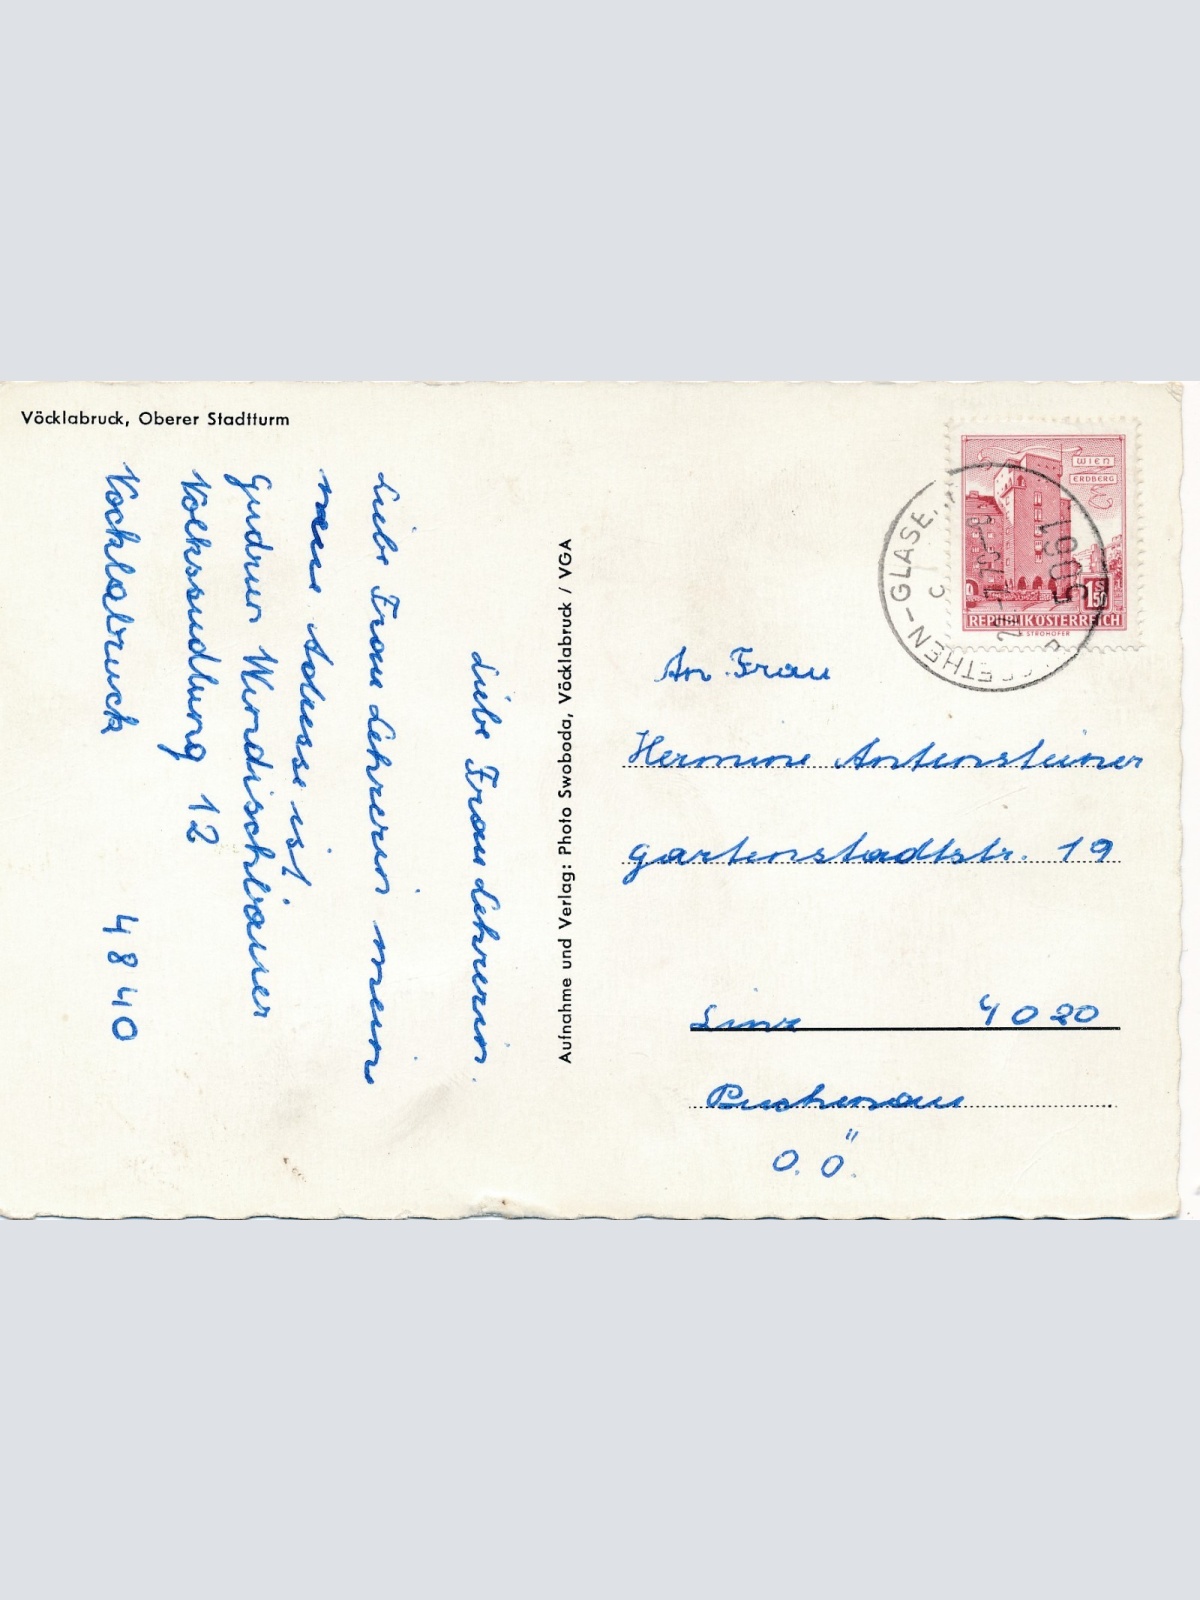 Vöcklabruck, Oberer Stadtturm
Liebe Frau Lehrerin.
Liebe Frau Lehrerin mein
neue Adresse ist.
Gudrun Windischbauer
Volkssiedlung 12
Vöcklabruck 4840
Aufnahme und Verlag: Photo Swoboda, Vöcklabruck / VGA
WIEN
ERDBERG
S 1.50
REPUBLIK ÖSTERREICH
STROHOFER
ETHEN-GLASE
5061
c
An Frau
Hermine Antensteiner
Gartenstadtstr. 19
Linz 4020
Buchenau
O.Ö.